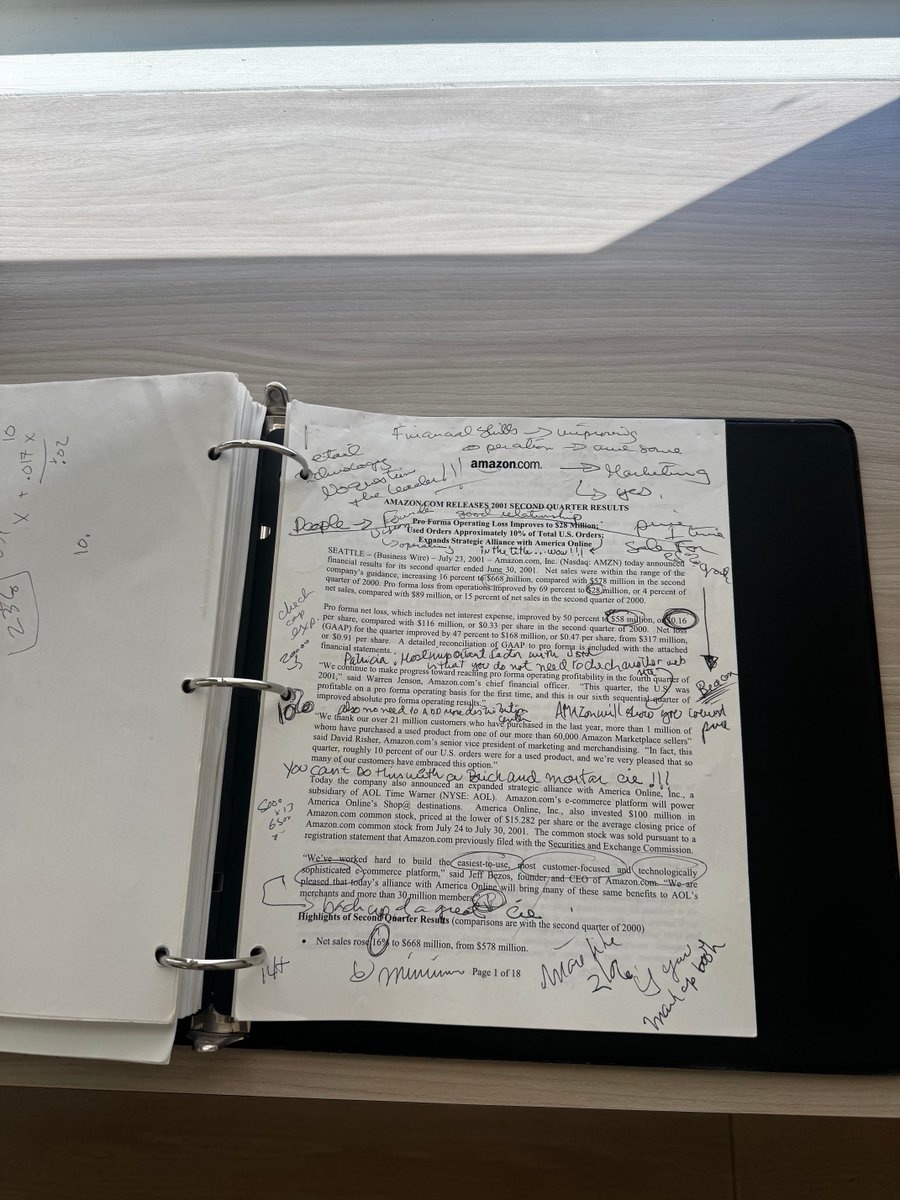 10
x + .017 x
+.02
10.
236
Financial skills → improving
operation → awesome
etail
technology
No question
the leader!!!
→ Marketing
↳ yes.
amazon.com.
AMAZON.COM RELEASES 2001 SECOND QUARTER RESULTS
good relationship
People →
Vision
↳ operating
Pro Forma Operating Loss Improves to $28 Million;
Used Orders Approximately 10% of Total U.S. Orders;
Expands Strategic Alliance with America Online
in the title... wow!!!
time
SEATTLE – (Business Wire) – July 23, 2001 – Amazon.com, Inc. (Nasdaq: AMZN) today announced
financial results for its second quarter ended June 30, 2001. Net sales were within the range of the
company's guidance, increasing 16 percent to $668 million, compared with $578 million in the second
quarter of 2000. Pro forma loss from operations improved by 69 percent to $28 million, or 4 percent of
net sales, compared with $89 million, or 15 percent of net sales in the second quarter of 2000.
check
cap
exp.
Pro forma net loss, which includes net interest expense, improved by 50 percent to $58 million, or $0.16
per share, compared with $116 million, or $0.33 per share in the second quarter of 2000. Net loss
(GAAP) for the quarter improved by 47 percent to $168 million, or $0.47 per share, from $317 million,
or $0.91 per share. A detailed reconciliation of GAAP to pro forma is included with the attached
financial statements.
Patricia: Most important factor with used
is that you do not need to do another web
site
"We continue to make progress toward reaching pro forma operating profitability in the fourth quarter of
2001," said Warren Jenson, Amazon.com's chief financial officer. "This quarter, the U.S. was
profitable on a pro forma operating basis for the first time, and this is our sixth sequential quarter of
improved absolute pro forma operating results."
Beacon
also no need to ADD more distribution
center
AMZN will show you
"We thank our over 21 million customers who have purchased in the last year, more than 1 million of
whom have purchased a used product from one of our more than 60,000 Amazon Marketplace sellers"
said David Risher, Amazon.com's senior vice president of marketing and merchandising. "In fact, this
quarter, roughly 10 percent of our U.S. orders were for a used product, and we're very pleased that so
many of our customers have embraced this option."
You can't Do this with a Brick and mortar cie!!!
Today the company also announced an expanded strategic alliance with America Online, Inc., a
subsidiary of AOL Time Warner (NYSE: AOL). Amazon.com's e-commerce platform will power
America Online's Shop@ destinations. America Online, Inc., also invested $100 million in
Amazon.com common stock, priced at the lower of $15.282 per share or the average closing price of
Amazon.com common stock from July 24 to July 30, 2001. The common stock was sold pursuant to a
registration statement that Amazon.com previously filed with the Securities and Exchange Commission.
5000
x 13
6500
"We've worked hard to build the easiest-to-use, most customer-focused and technologically
sophisticated e-commerce platform," said Jeff Bezos, founder and CEO of Amazon.com. "We are
pleased that today's alliance with America Online will bring many of these same benefits to AOL's
merchants and more than 30 million members."
of a great cie
Highlights of Second Quarter Results (comparisons are with the second quarter of 2000)
• Net sales rose 16% to $668 million, from $578 million.
14+
minimum
Page 1 of 18
More like
if you
mark up book